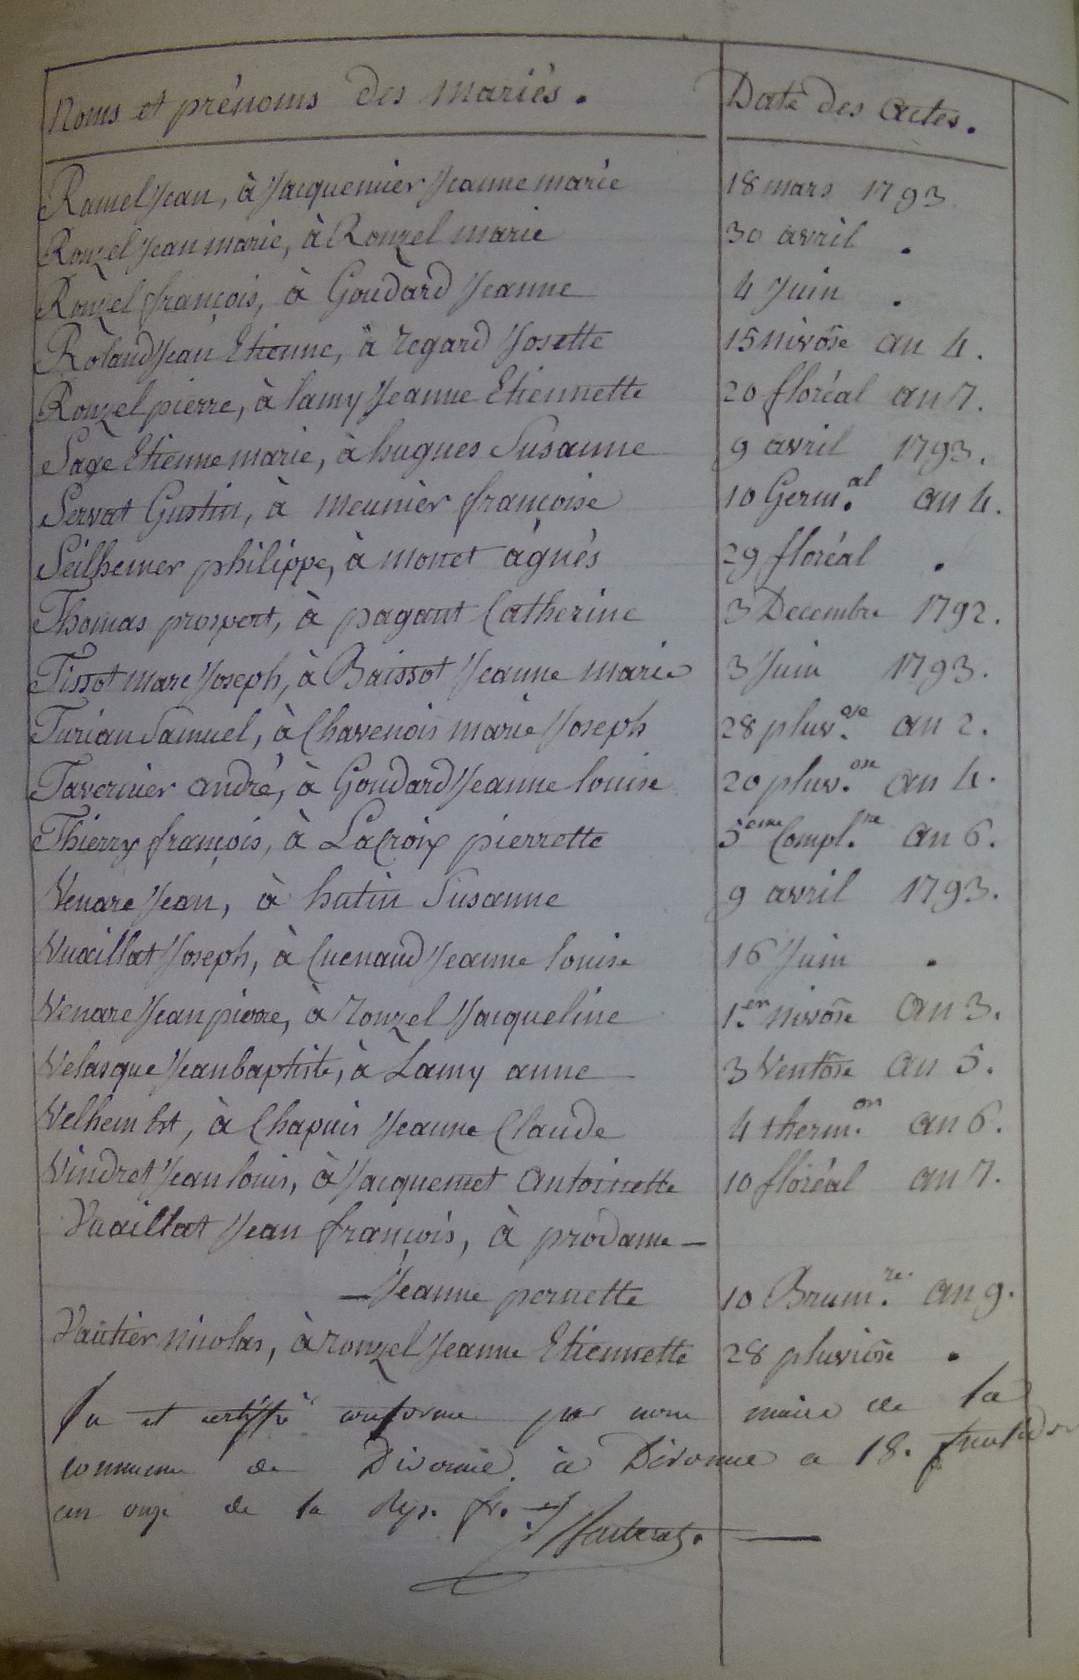 Noms et prénoms des mariés. Date des actes.
Ramel Jean, à Jacquemier Jeanne marie 18 mars 1793
Rouzel Jean marie, à Rouzel marie 30 avril .
Rouzel françois, à Goudard Jeanne 4 Juin .
Roland Jean Etienne, à regard Josette 15 nivôse an 4.
Rouzel pierre, à lamy Jeanne Etiennette 20 floréal an 7.
Sage Etienne marie, à hugues Susanne 9 avril 1793.
Servat Gustin, à meunier françoise 10 Germ.al an 4.
Seilhemer philippe, à monet agnès 29 floréal .
Thomas prospert, à pagant Catherine 3 Decembre 1792.
Tissot marc Joseph, à Baissot Jeanne marie 3 Juin 1793.
Turian Samuel, à Chavenois marie Joseph 28 pluv.ose an 2.
Tavernier andré, à Goudard Jeanne louise 20 pluv.ose an 4.
Thierry françois, à LaCroix pierrette 5eme Compl.re an 6.
Venare Jean, à hutin Susanne 9 avril 1793.
Vuaillat Joseph, à Cuenaud Jeanne louise 16 Juin .
Venare Jean pierre, à rouzel Jacqueline 1.er nivôse an 3.
Velasque Jean baptiste, à Lamy anne 3 Ventôse an 5.
Velhem , à Chapuis Jeanne Claude 4 therm.or an 6.
Vindret Jean louis, à Jacquemet antoinette 10 floréal an 7.
Vuaillat Jean françois, à prodame —
— Jeanne pernette 10 Brum.re an 9.
Vautier nicolas, à rouzel Jeanne Etiennette 28 pluviôse .
Vu et certifié conforme par nous maire de la
commune de Divonne à Divonne a 18. fructidor
an onze de la Rep. fr.